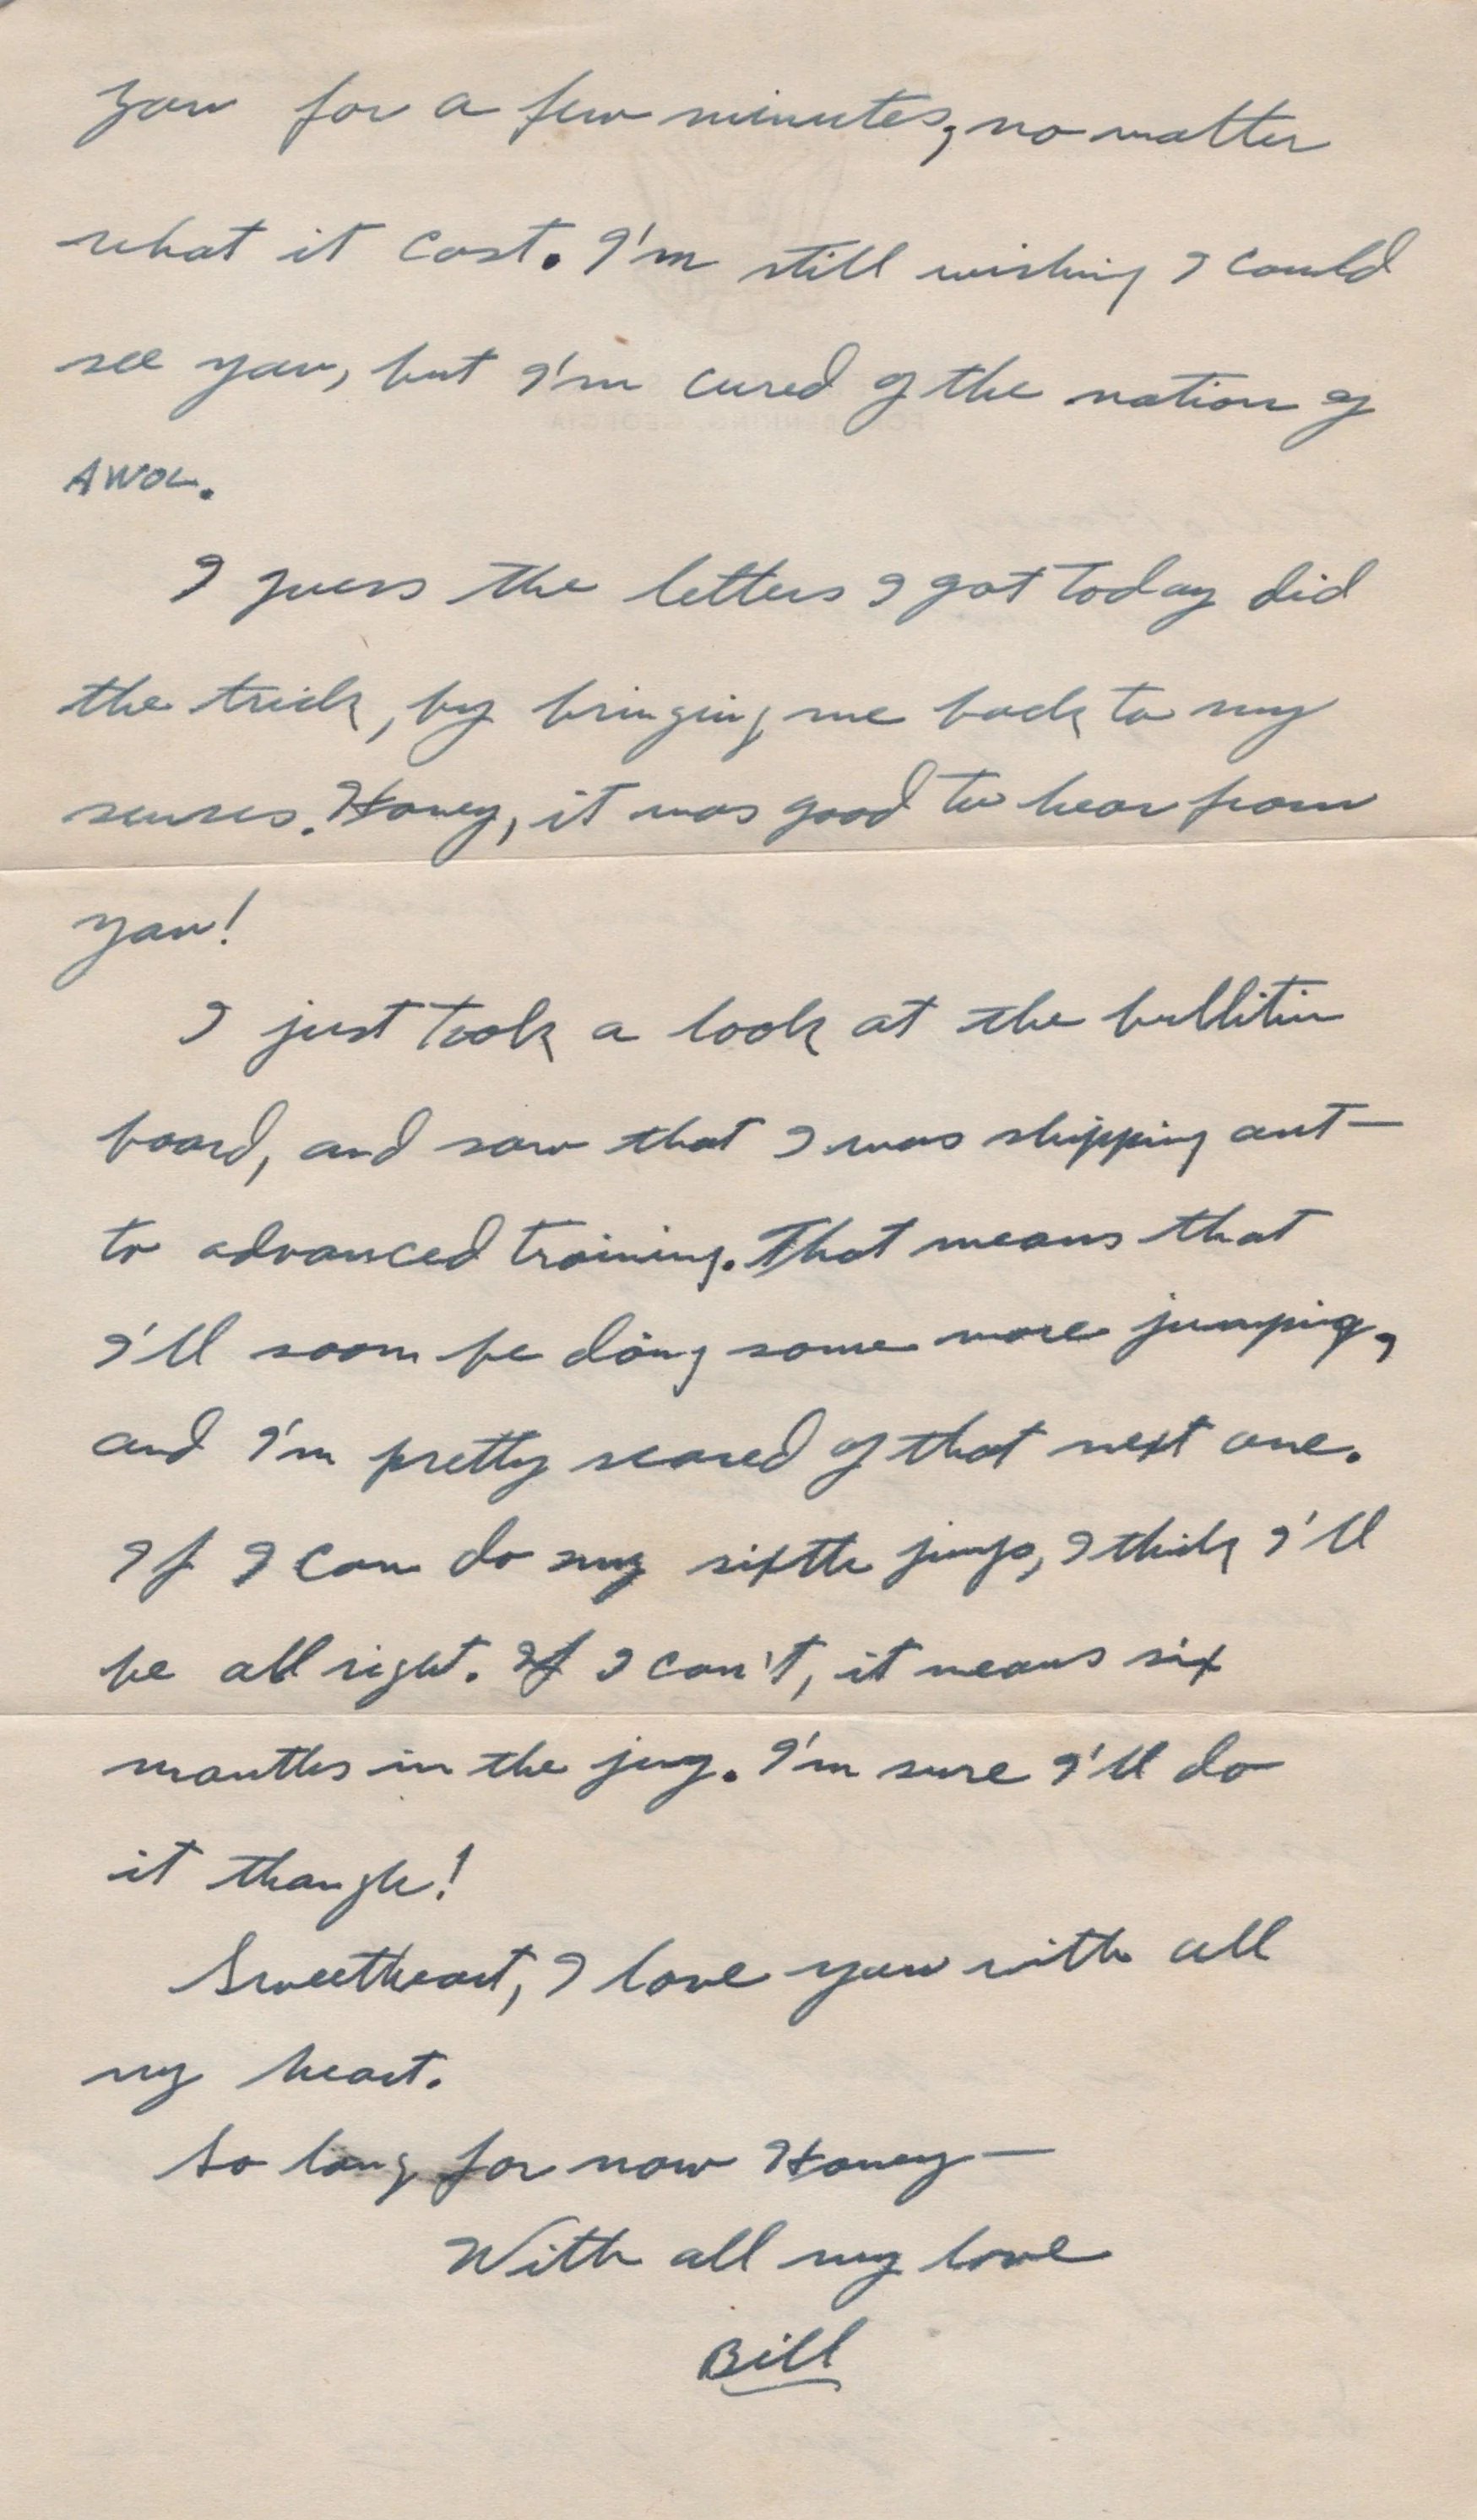 you for a few minutes, no matter
what it cost. I'm still wishing I could
see you, but I'm cured of the notion of
AWOL.
I guess the letters I got today did
the trick, by bringing me back to my
senses. Honey, it was good to hear from
you!
I just took a look at the bullitin
board, and saw that I was shipping out—
to advanced training. That means that
I'll soon be doing some more jumping,
and I'm pretty scared of that next one.
If I can do my sixth jump, I think I'll
be all right. If I can't, it means six
months in the jug. I'm sure I'll do
it though!
Sweetheart, I love you with all
my heart.
So long for now Honey—
With all my love
Bill